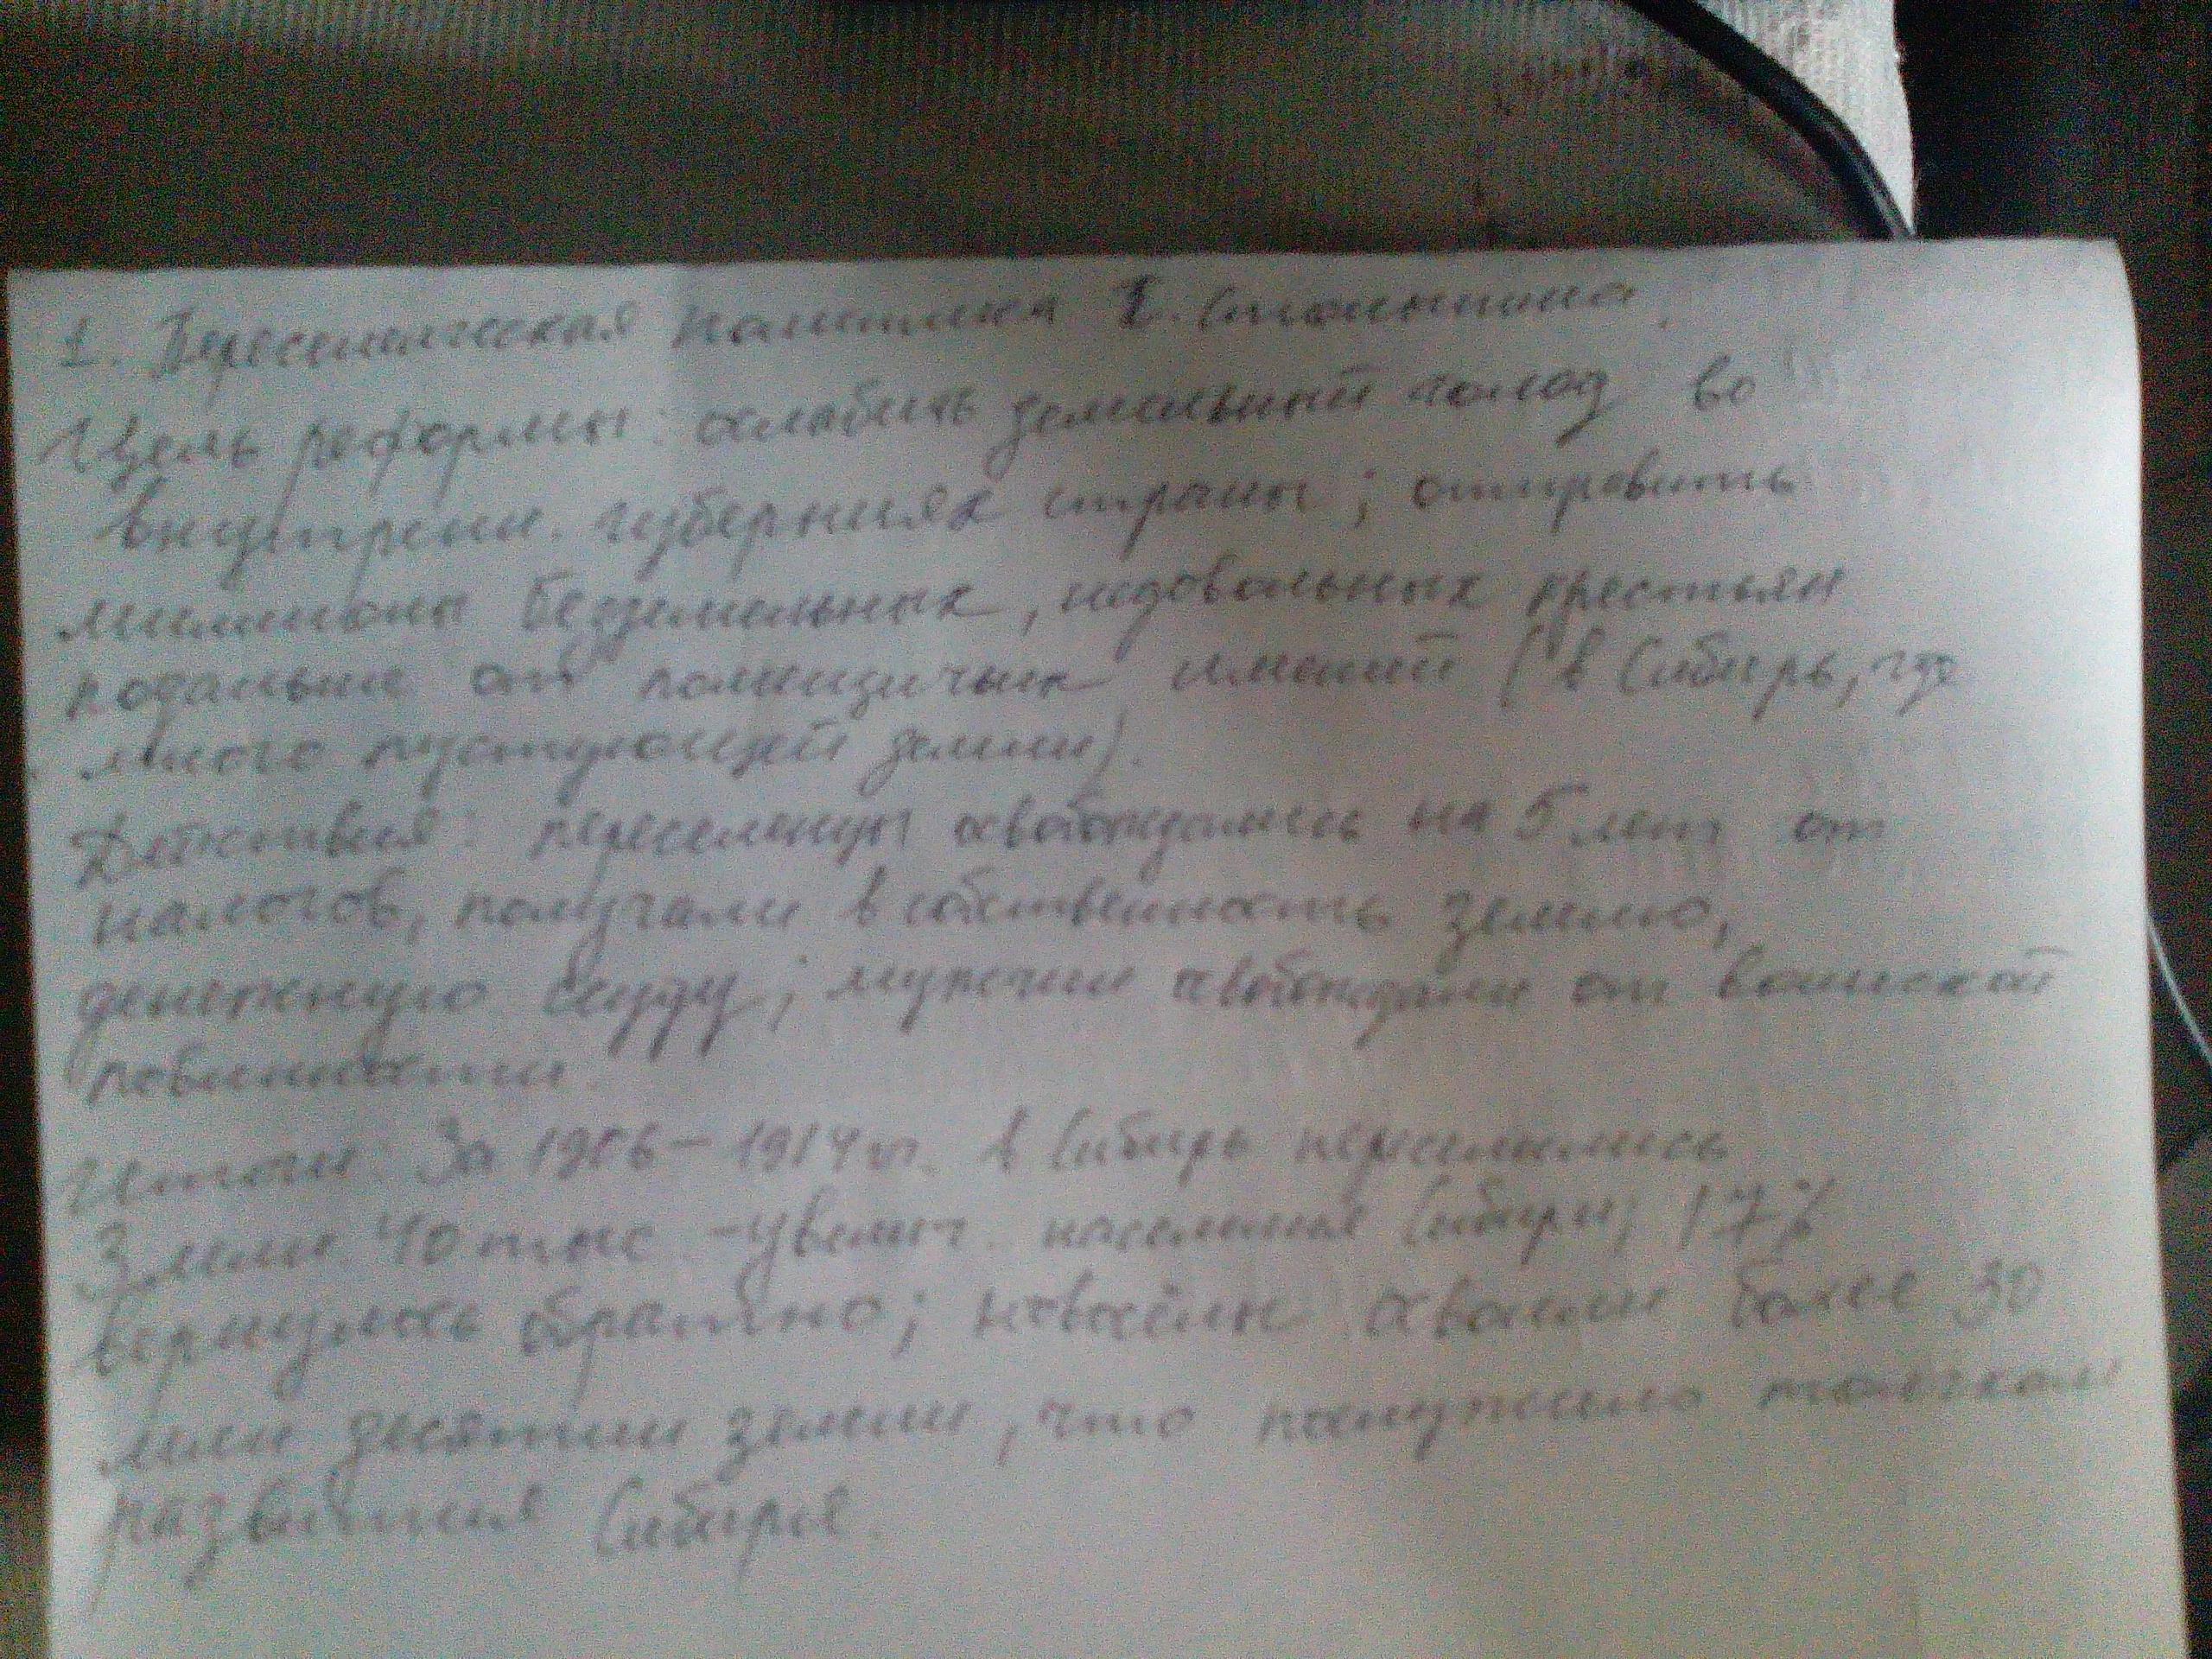 1. Переселенческая политика П. Столыпина.
Цель реформы: ослабить земельный голод во
внутренн. губерниях страны; отправить
миллионы безземельных, недовольных крестьян
подальше от помещичьих имений (в Сибирь, где
много пустующей земли).
Действия: переселенцы освобождались на 5 лет от
налогов, получали в собственность землю,
денежную ссуду; мужчин освобождали от воинской
повинности.
Итоги: За 1906-1914 гг. в Сибирь переселились
3 млн 40 тыс - увелич. население Сибири; 17%
вернулось обратно; новосёлы освоили более 30
млн десятин земли, что послужило толчком
развития Сибири.